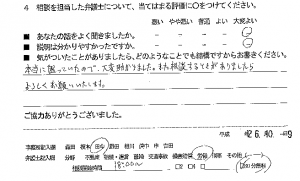 4 相談を担当した弁護士について、当てはまる評価に○をつけてください。
悪い やや悪い 普通 よい 大変よい
■ あなたの話をよく聞きましたか。
■ 説明は分かりやすかったですか。
■ 気がついたことがありましたら、どのようなことでも結構ですからお書きください。
本当に困っていたので、大変助かりました。また相談することがありましたら
よろしくお願いいたします。
ご協力ありがとうございました。
平成
事務局記入欄
弁護士記入欄 分野 不動産 相続・遺言 離婚 交通事故 債務整理 労働 刑事 その他
相談開始時間 18:00〜